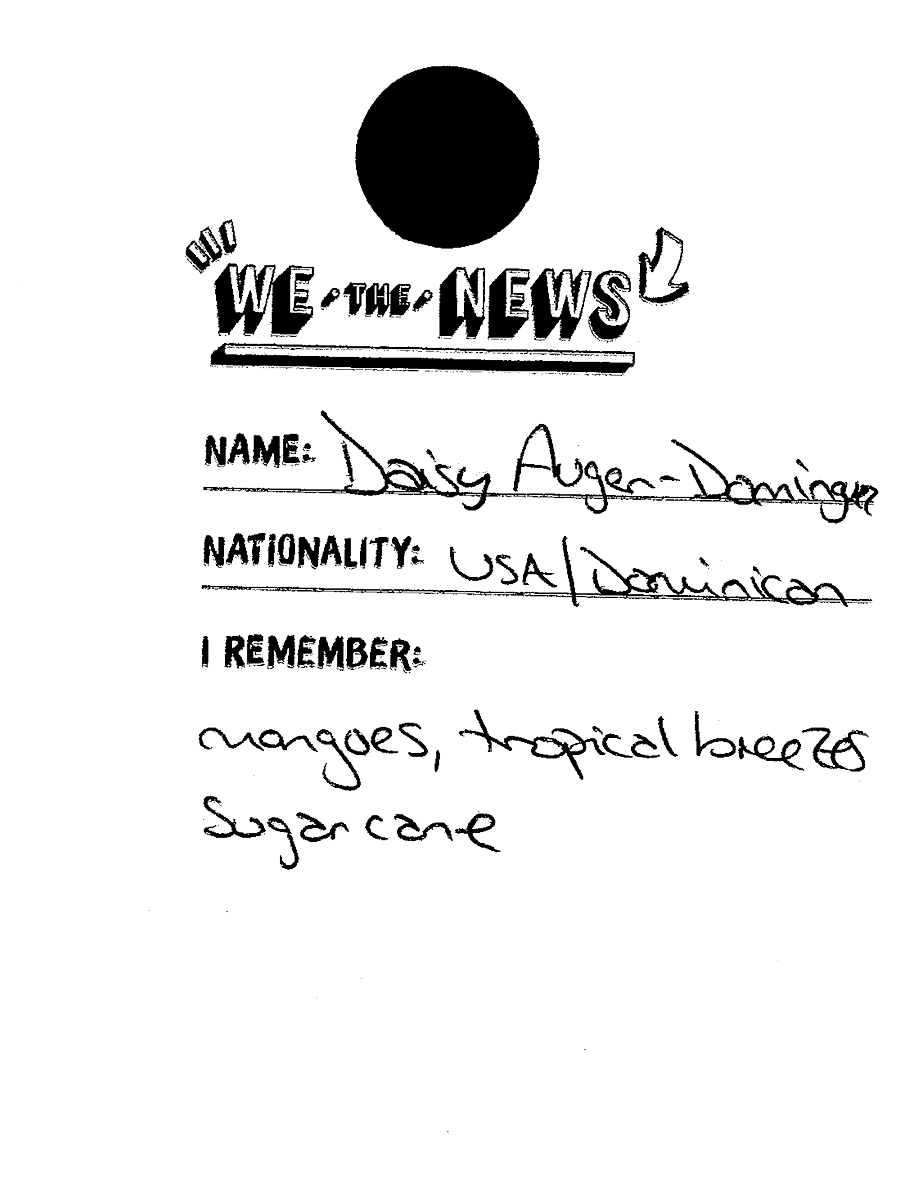 WE THE NEWS
NAME: Daisy Auger-Dominguez
NATIONALITY: USA/Dominican
I REMEMBER:
mangoes, tropical breezes
Sugar cane